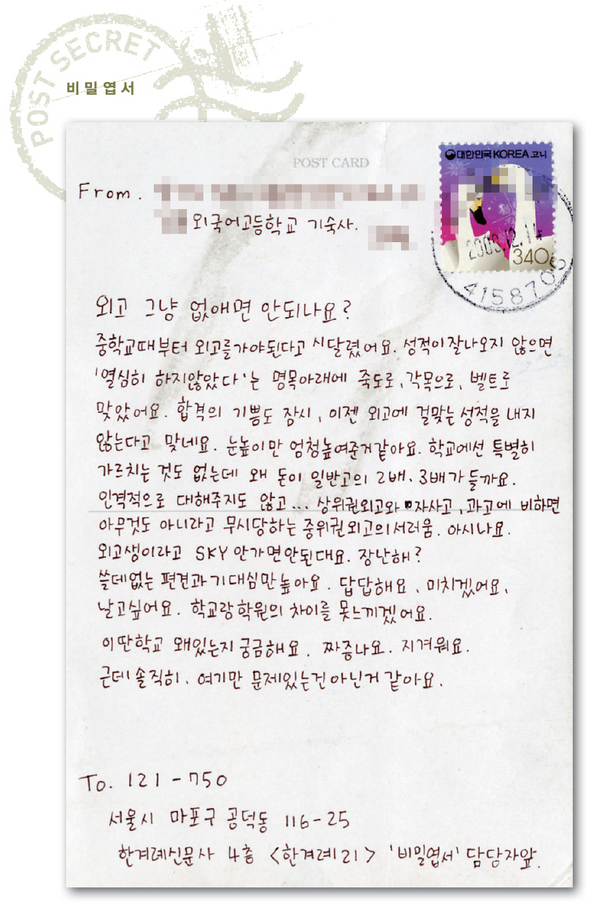 POST SECRET
비밀엽서
POST CARD
대한민국 KOREA 고니
From.
외국어고등학교 기숙사.
340
4158700
외고 그냥 없애면 안되나요?
중학교때부터 외고를가야된다고 시달렸어요. 성적이잘나오지 않으면
'열심히 하지않았다'는 명목아래에 죽도로, 각목으로, 벨트로
맞았어요. 합격의 기쁨도 잠시, 이젠 외고에 걸맞는 성적을 내지
않는다고 맞네요. 눈높이만 엄청높여준거같아요. 학교에선 특별히
가르치는 것도 없는데 왜 돈이 일반고의 2배. 3배가 들까요.
인격적으로 대해주지도 않고... 상위권외고와 자사고, 과고에 비하면
아무것도 아니라고 무시당하는 중위권외고의서러움. 아시나요.
외고생이라고 SKY 안가면안된대요. 장난해?
쓸데없는 편견과기대심만높아요. 답답해요, 미치겠어요,
날고싶어요. 학교랑학원의 차이를 못느끼겠어요.
이딴학교 왜있는지 궁금해요. 짜증나요. 지겨워요.
근데 솔직히. 여기만 문제있는건아닌거 같아요.
To. 121-750
서울시 마포구 공덕동 116-25
한겨레신문사 4층 <한겨레21> '비밀엽서' 담당자앞.